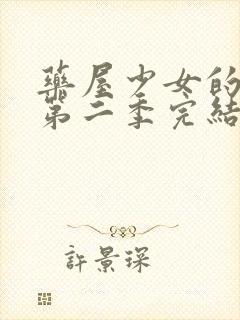 藥屋少女的
第二季完結
許景琛